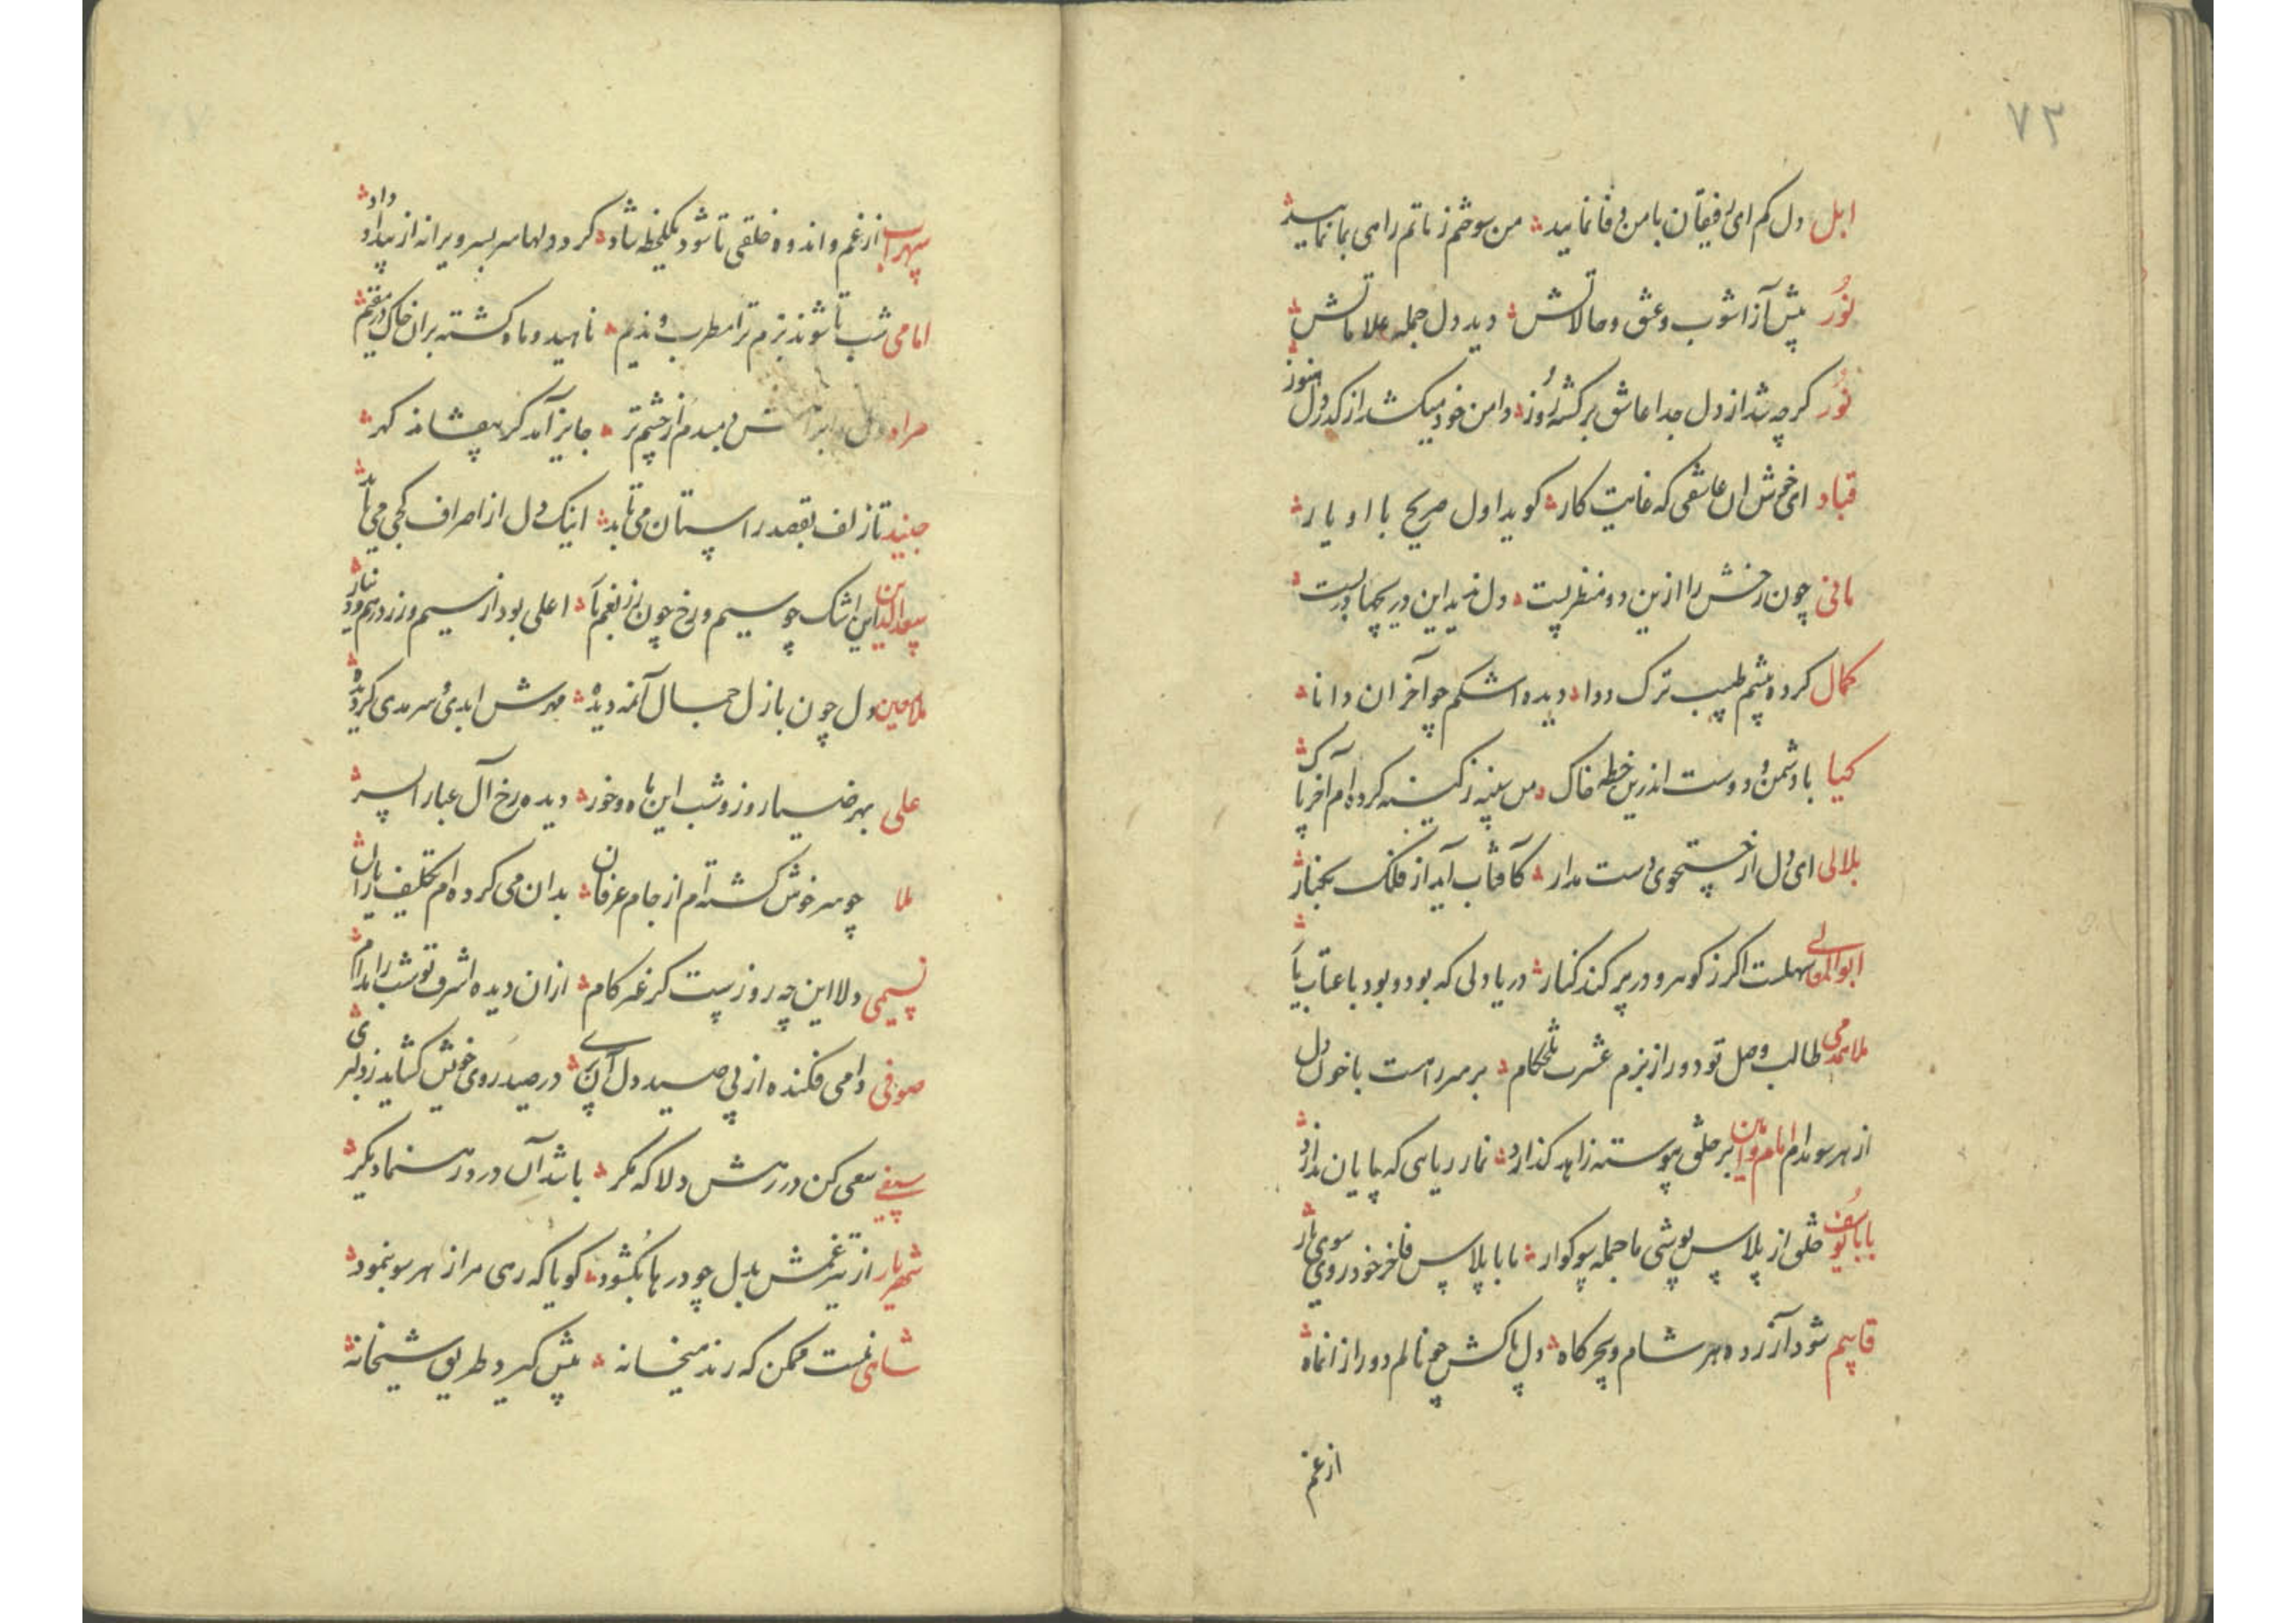 ۷۳
ابل دل کم ای رفیقان با من وفا نمایید من سوختم ز ماتم راهی بما نمایید
نور پیش از آشوب وعشق وحالاتش دید دل جمله علاماتش
نور کرچه شد از دل جدا عاشق برکشته روز دامن خود میکشد از کرد دل هنوز
قباد ای خوش ان عاشقی که غایت کار کوید اول صریح با او یار
مانی چون رخش را ازین دو منظر بست دل ندید این دریچها
کمال کرده پیشم طبیب ترک دوا دیده اشکم چو آخر ان دانا
کیا با دشمن و دوست اندرین خطه خاک من سینه ز کینه کرده ام آخر پاک
بلالی ای دل از جستجوی دست مدار کآفتاب آید از فلک بکنار
ابو المعالی سهلست اکر ز کوهر و در پر کند کنار دریا دلی که بود وبود با عتاب یار
ملا همدمی طالب وصل تو دور از بزم عشرت تلخکام بر سر راهست با خون دل
از هر سو مدام امام وامان بر خلق پیوسته زاهد کذارد نماز ریاهی که پایان ندارد
بابا یوسف خلق از پلاس پوشی ما جمله سوکوار بابا پلاس فاخر خود روی سوی
قاسم شود آزرده هر شام وسحرکاه دل پاکش چو نالم دور از انماه
از غم
سهراب از غم واندوه خلقی تا شود یکلحظه شاد کرد دلها سر بسر ویرانه از بیداد داد
امامی شب تا شوند بزم ترا مطرب و ندیم ناهید وماه کشته بران خاک در مقیم
مراد دل از چشم تر جایز آمد کر بیفشاند کهر
جنید تا زلف بقصد راستان می تابد اینک دل از اصراف کجی می یابد
سعد الدین این اشک چو سیم ورخ چون زر زغم اعلی بود از سیم وزر درهم ودینار
ملا معین دل چون بازل جمال آنمه دیده مهرش ابدی وسرمدی کردیده
علی بهر ضیا روز وشب این ماه وخور دیده رخ آل عبا را سپر
ملا چو سر خوش کشته ام از جام عرفان بدان می کرده ام تکلیف یاران
نسیمی دلا این چه روزیست کز غیر کام ازان دیده اشرف تو شب را مدام
صوفی دامی فکنده از پی صید دل آن پری در صید روی خویش کشاید ز دلبری
سیفی سعی کن در رهش دلا که مکر باشد آن در دور رهنما دیکر
شهریار از تیر غمش بدل چو درها بکشود کویا که رهی مرا ز هر سو بنمود
شاهی نیست ممکن که رند میخانه پیش کیرد طریق شیخانه